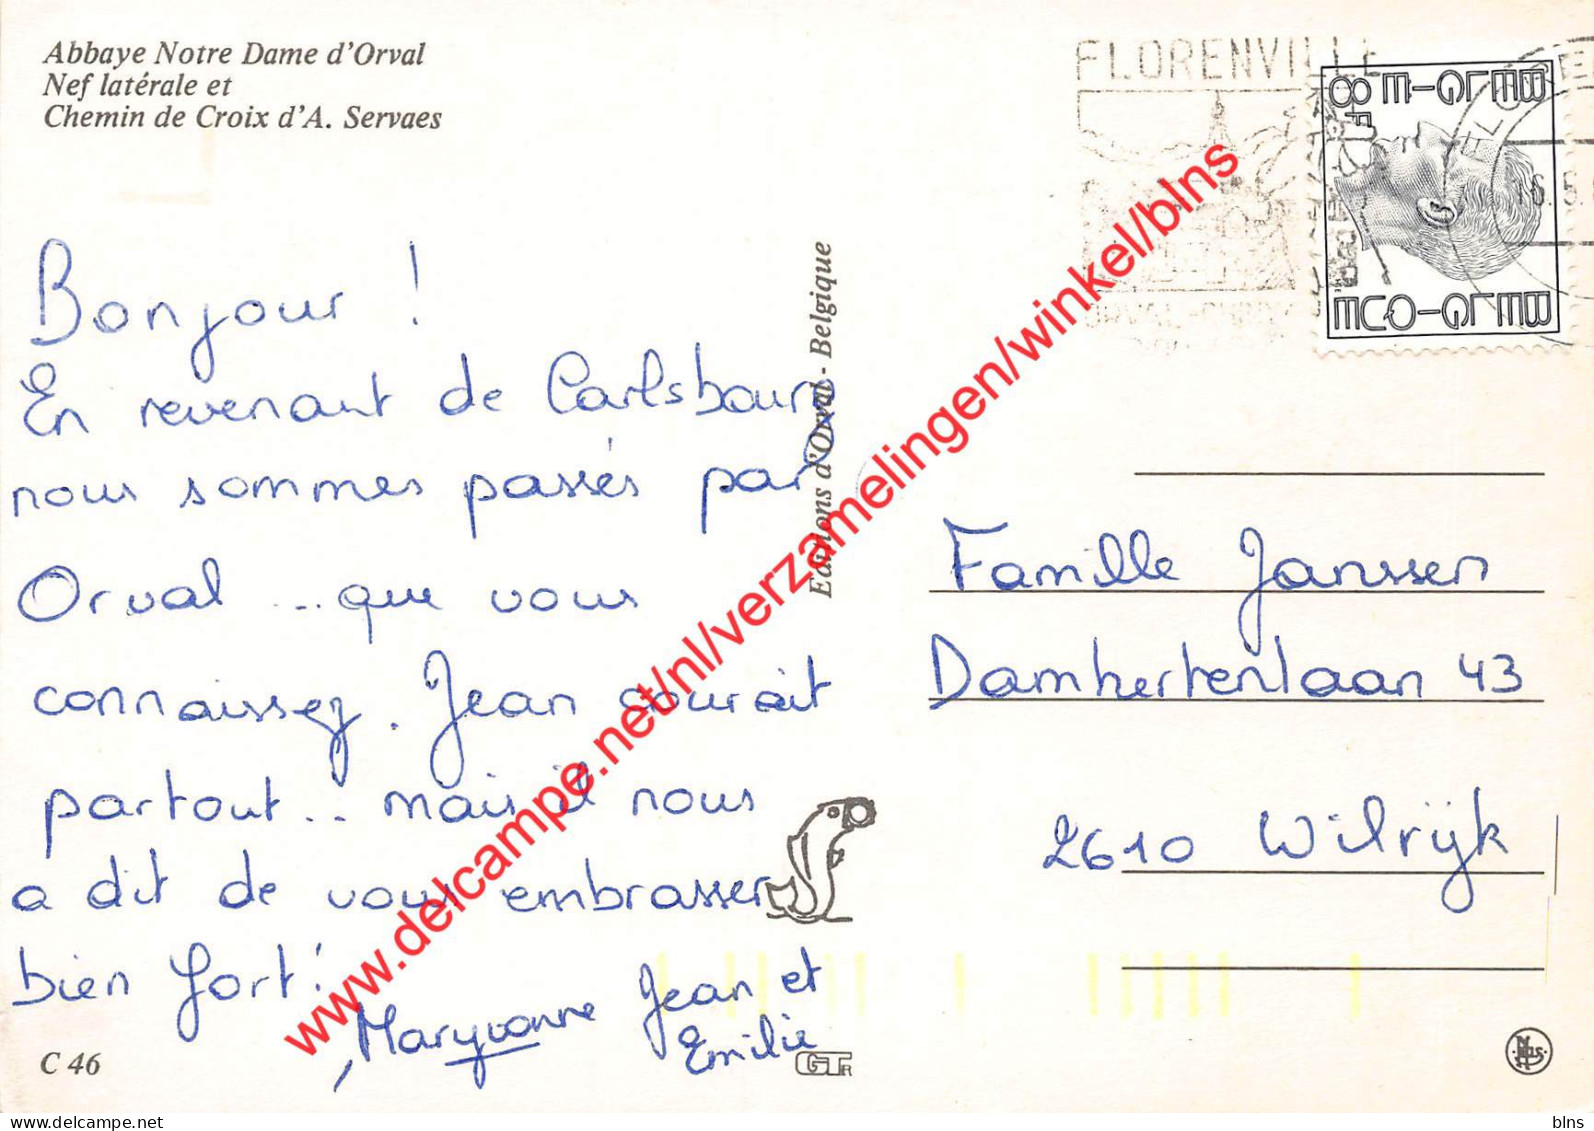 Abbaye Notre Dame d'Orval
Nef latérale et
Chemin de Croix d'A. Servaes
FLORENVILLE
BELGIE-BELGIQUE
8F
Bonjour !
En revenant de Carlsbourg
nous sommes passés par
Orval ... que vous
connaissez. Jean courait
partout... mais il nous
a dit de vous embrasser
bien fort!
, Maryvonne Jean et
Emilie
Editions d'Orval - Belgique
Famille Janssen
Damhertenlaan 43
2610 Wilrijk
C 46
GTR
Nels
www.delcampe.net/nl/verzamelingen/winkel/blns
blns